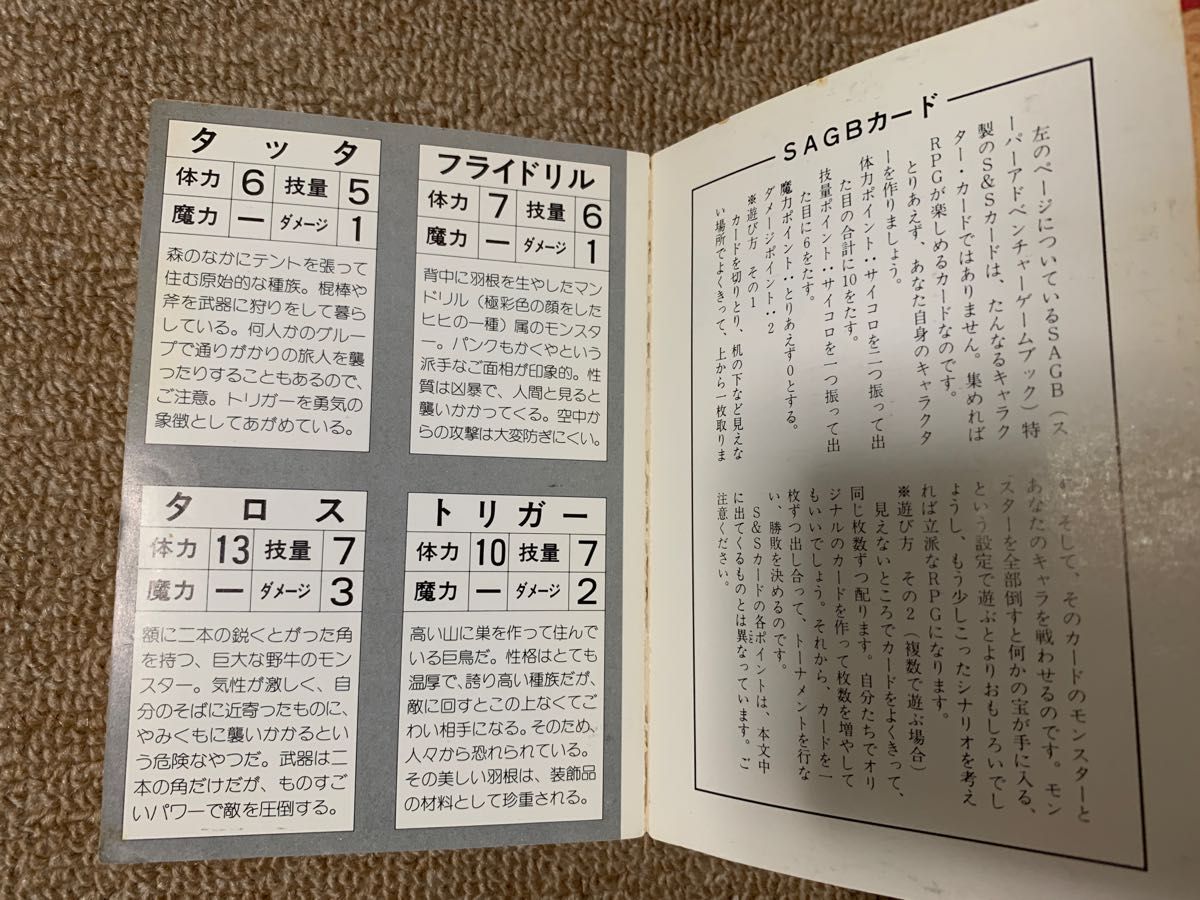 タッタ
体力 6 技量 5
魔力 ー ダメージ 1
森のなかにテントを張って
住む原始的な種族。棍棒や
斧を武器に狩りをして暮ら
している。何人かのグルー
プで通りがかりの旅人を襲
ったりすることもあるので、
ご注意。トリガーを勇気の
象徴としてあがめている。
フライドリル
体力 7 技量 6
魔力 ー ダメージ 1
背中に羽根を生やしたマン
ドリル（極彩色の顔をした
ヒヒの一種）属のモンスタ
ー。パンクもかくやという
派手なご面相が印象的。性
質は凶暴で、人間と見ると
襲いかかってくる。空中か
らの攻撃は大変防ぎにくい。
タロス
体力 13 技量 7
魔力 ー ダメージ 3
額に二本の鋭くとがった角
を持つ、巨大な野牛のモン
スター。気性が激しく、自
分のそばに近寄ったものに、
やみくもに襲いかかるとい
う危険なやつだ。武器は二
本の角だけだが、ものすご
いパワーで敵を圧倒する。
トリガー
体力 10 技量 7
魔力 ー ダメージ 2
高い山に巣を作って住んで
いる巨鳥だ。性格はとても
温厚で、誇り高い種族だが、
敵に回すとこの上なくてご
わい相手になる。そのため、
人々から恐れられている。
その美しい羽根は、装飾品
の材料として珍重される。
SAGBカード
左のページについているSAGB（ス
ーパーアドベンチャーゲームブック）特
製のS&Sカードは、たんなるキャラク
ター・カードではありません。集めれば
RPGが楽しめるカードなのです。
とりあえず、あなた自身のキャラクタ
ーを作りましょう。
体力ポイント‥サイコロを二つ振って出
た目の合計に10をたす。
技量ポイント‥サイコロを一つ振って出
た目に6をたす。
魔力ポイント‥とりあえず0とする。
ダメージポイント‥2
※遊び方 その1
カードを切りとり、机の下など見えな
い場所でよくきって、上から一枚取りま
す。そして、そのカードのモンスターと
あなたのキャラを戦わせるのです。モン
スターを全部倒すと何かの宝が手に入る、
という設定で遊ぶとよりおもしろいでし
ょうし、もう少しこったシナリオを考え
れば立派なRPGになります。
※遊び方 その2（複数で遊ぶ場合）
見えないところでカードをよくきって、
同じ枚数ずつ配ります。自分たちでオリ
ジナルのカードを作って枚数を増やして
もいいでしょう。それから、カードを一
枚ずつ出し合って、トーナメントを行な
い、勝敗を決めるのです。
S&Sカードの各ポイントは、本文中
に出てくるものとは異なっています。ご
注意ください。